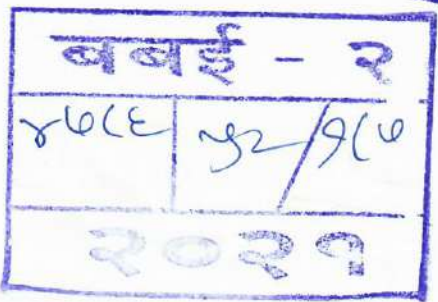 बबई - २
४७८६ ५२/१८७
२०२१